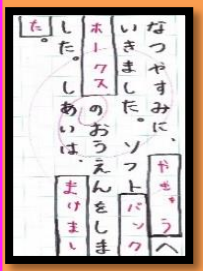 なつやすみに、やきゅうへ
いきました。ソフトバンク
ホークスのおうえんをしま
した。しあいは、まけまし
た。